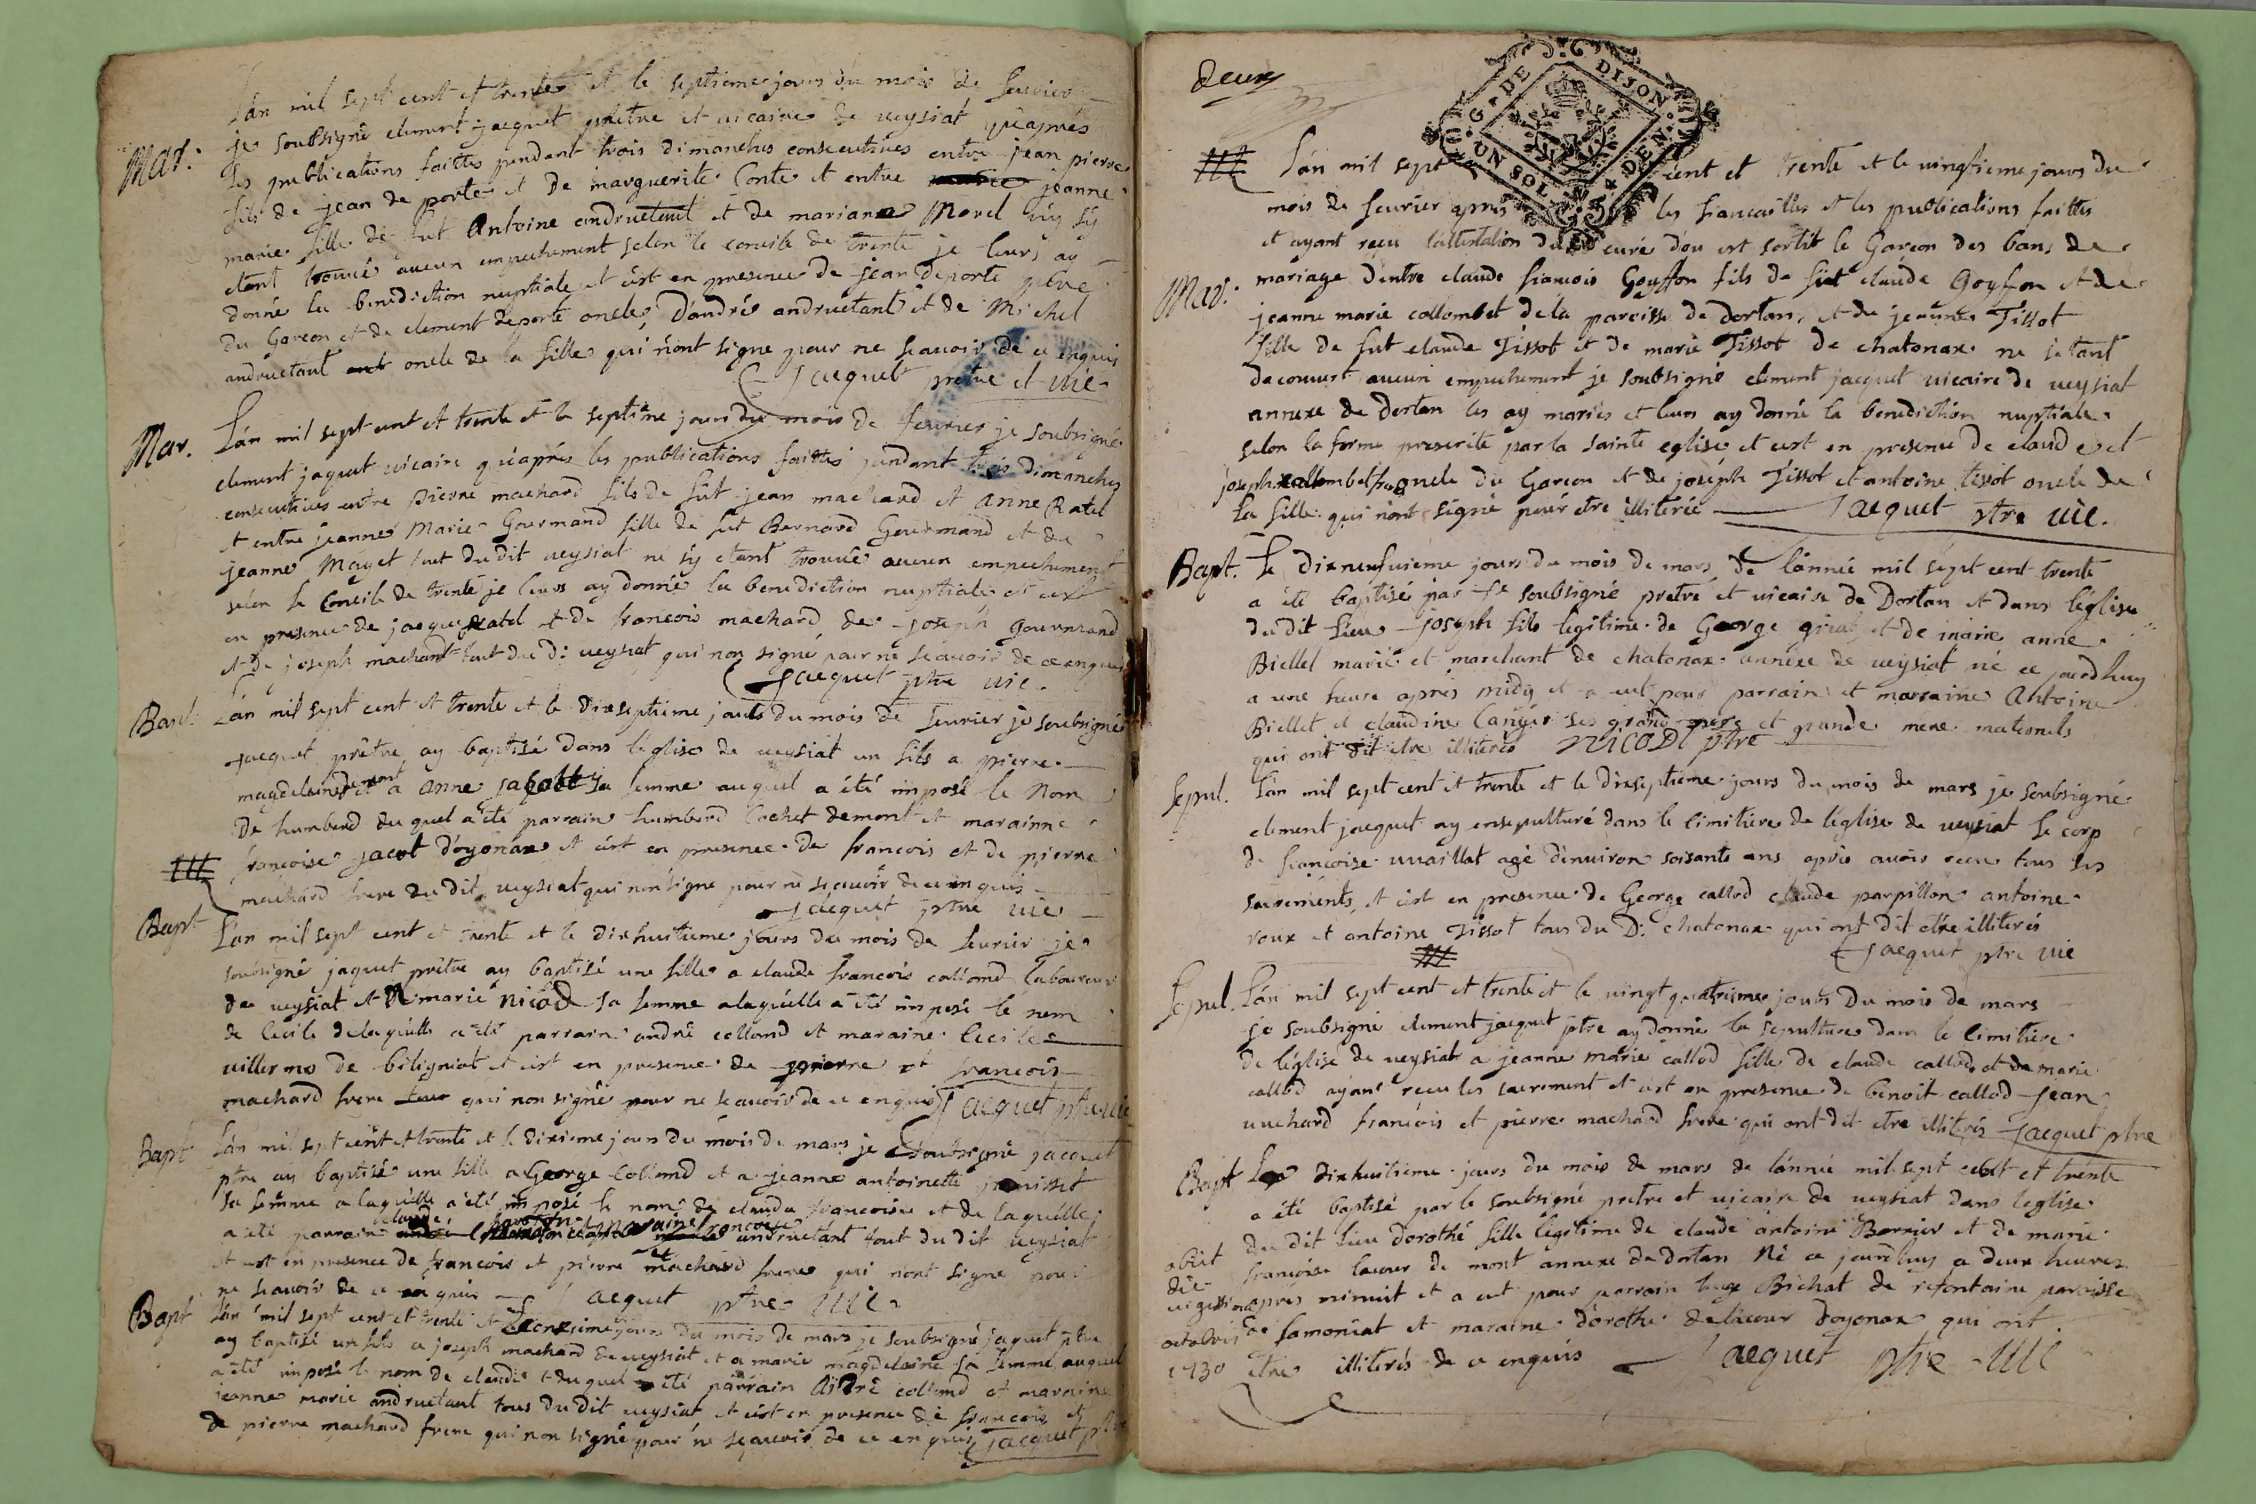 L'an mil sept cent et trente et le septieme jours du mois de feuvrier
Mar. je soubsigné clement jacquet prêtre et vicaire de veysiat qu'après
les publications faittes pendant trois dimanches consecutives entre jean pierre
fils de jean de porte et de marguerite Conte et entre jeanne
marie fille de fut Antoine andruetant et de mariane Morel n'y s'y
etant trouvé aucun empechement selon le concile de trente je leurs ay
donné la benediction nuptiale et c'est en presence de jean deporte père
du Garcon et de clement deporte oncle, d'andrée andruetant et de Michel
andruetant oncle de la fille qui n'ont signe pour ne scauoir de ce enquis
Jacquet pretre et vic.
Mar. L'an mil sept cent et trente et le septime jours du mois de feuvrier je soubsigné
clement jaquet vicaire qu'aprés les publications faittes pendant trois dimanches
consecutives entre Pierre machard fils de fût jean machard et Anne Ratel
et entre jeanne Marie Gourmand fille de fut Bernard Gourmand et de
jeanne Mayet tout du dit veysiat ne s'y etant trouvé aucun empechement
selon le Concile de trente je leurs ay donné la benediction nuptiale et c'est
en presence de jacque Ratel et de francois machard de joseph gourmand
et de joseph machard tout du d: veysiat qui non signé pour ne scauoir de ce enquis
Jacquet ptre vic.
Bapt. L'an mil sept cent et trente et le dixseptieme jours du mois de feuvrier je soubsigné
jacquet prêtre ay baptisé dans l'églises de veysiat un fils a pierre
magdelaine demont et a Anne sa femme auquel a été imposé le nom
De humberd duquel a été parrain humberd Cochet demont et marainne
francoise jacot d'oyonax et c'est en presence de francois et de pierre
machard frere du dit veysiat qui non signe pour ne scauoir de ce enquis
Jacquet ptre vic
Bapt L'an mil sept cent et trente et le dixhuitieme jours du mois de feurier je
soubsigné jaquet prêtre ay baptisé une fille a claude francois collomd laboureur
de veysiat et a marie nicod sa femme alaquelle a été imposé le nom
de Cecile de laquelle a été parrain andré collomd et maraine Cecile
villerme de béligniat et c'est en presence de pierre et francois
machard frere qui non signé pour ne scauoir de ce enquis Jacquet ptre vic
Bapt L'an mil sept cent et trente et le dixieme jours du mois de mars je soubsigné jacquet
ptre ay baptisé une fille a George Collomd et a jeanne antoinette
sa femme a laquelle a été imposé le nom de claude francoise et de laquelle
a été parrain claude et maraine francoise andruetant tout du dit veysiat
et c'est en presence de francois et pierre machard freres qui n'ont signe pour
ne scauoir de ce enquis Jacquet ptre vic.
Bapt L'an mil sept cent et trente et jours du mois de mars je soubsigné jaquet ptre
ay baptisé un fils a joseph machard de veysiat et a marie magdelaine sa femme auquel
a été imposé le nom de claude et duquel a été parrain André collomd et maraine
jeanne marie andruetant tous du dit veysiat et c'est en presence de francois et
de pierre machard frere qui non signé pour ne scauoir de ce enquis jacquet
deux
G. DE DIJON
UN SOL 4 DEN.
L'an mil sept cent et trente et le vingtieme jours du
mois de feurier apres les fiancailles et les publications faittes
et ayant reçu l'attestation du curé d'ou est sortit le Garcon des bans de
Mar. mariage d'entre claude francois Goyffon fils de fut claude Goyffon et de
jeanne marie collombet de la paroisse de dortan, et de jeanne Tissot
fille de fut claude Tissot et de marie Tissot de chatonax ne s'etant
decouvert aucun empechement je soubsigné clement jacquet vicaire de veysiat
annexe de dortan les ay mariés et leurs ay donné la benediction nuptiale
selon la forme prescrite par la sainte eglise et c'est en presence de claude et
joseph collombet oncle du Garcon et de joseph Tissot et antoine tissot oncle de
la fille qui n'ont signé pour etre illiterée Jacquet ptre vic.
Bapt. Le dixneufuieme jours du mois de mars de l'année mil sept cent trente
a été baptisé par le soubsigné pretre et vicaire de Dortan et dans l'eglise
du dit lieu joseph fils legitime de George et de marie anne
Biellet marié et marchant de chatonax annexe de veysiat né ce jourdhuy
a une heure après midy et a eut pour parrain et marraine Antoine
Biellet et claudine ses grand pere et grande mere maternels
qui ont dit etre illiterés NICOD ptre
Sepul. L'an mil sept cent et trente et le dixseptieme jours du mois de mars je soubsigné
clement jacquet ay ensepulturé dans le cimitiere de l'église de veysiat le corp
de françoise vuaillat agé d'environ soisante ans après avoir reçu tous les
sacrements, et c'est en presence de George callod claude parpillon antoine
roux et antoine Tissot tous du D: chatonax qui ont dit etre illiterés
Jacquet ptre vic
Sepul. L'an mil sept cent et trente et le vingt quatrieme jours du mois de mars
je soubsigné clement jacquet ptre ay donné la sepulture dans le cimitiere
de l'église de veysiat a jeanne marie callod fille de claude callod et de marie
callod ayant reçu les sacrement et c'est en presence de benoit callod jean
vuchard francois et pierre machard frere qui ont dit etre illiterés Jacquet ptre
Bapt Le dixhuitieme jours du mois de mars de l'année mil sept cent et trente
a été baptisé par le soubsigné pretre et vicaire de veysiat dans l'eglise
du dit lieu dorothé fille legitime de claude antoine Bernier et de marie
francoise lacour de mont annexe de dortan Né ce jourdhuy a deux heures
apres minuit et a eut pour parrain Bichat de refontaine paroisse
de samoniat et maraine dorothé delacour d'oyonax qui ont
etre illiterés de ce enquis Jacquet ptre vic
obiit
die
octobris
1730